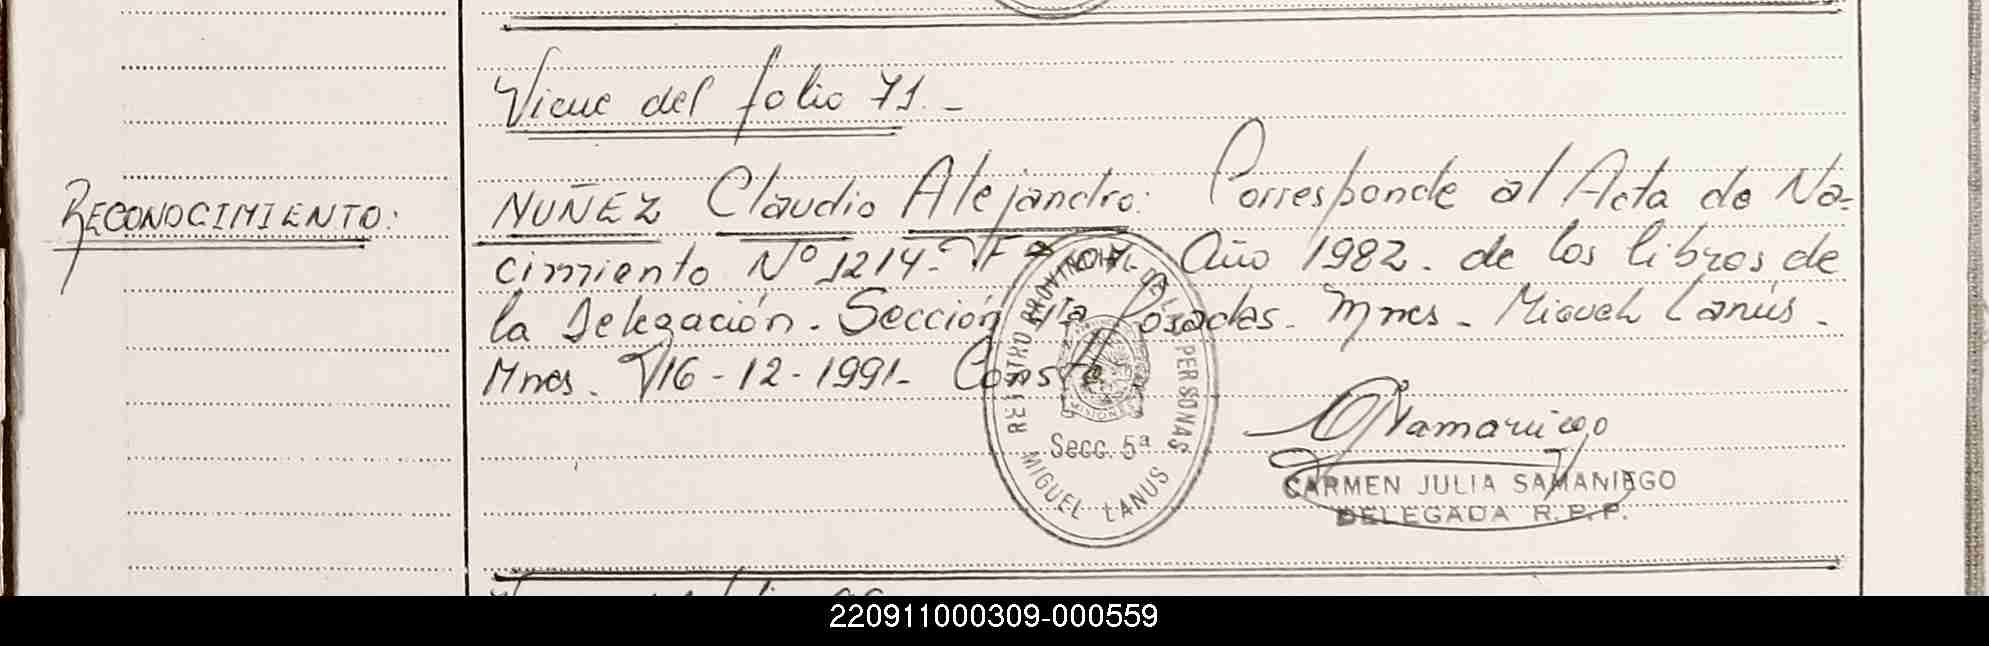 Viene del folio 71.-
RECONOCIMIENTO:
NUÑEZ Claudio Alejandro: Corresponde al Acta de Na-
cimiento Nº 1214- Año 1982. de los libros de
la Delegación. Sección 4ta Posadas. Mnes - Miguel Lanús.
Mnes. 16-12-1991- Conste
REGISTRO PROVINCIAL DE LAS PERSONAS
MISIONES
Secc. 5ª
MIGUEL LANUS
CARMEN JULIA SAMANIEGO
DELEGADA R. P. P.
220911000309-000559